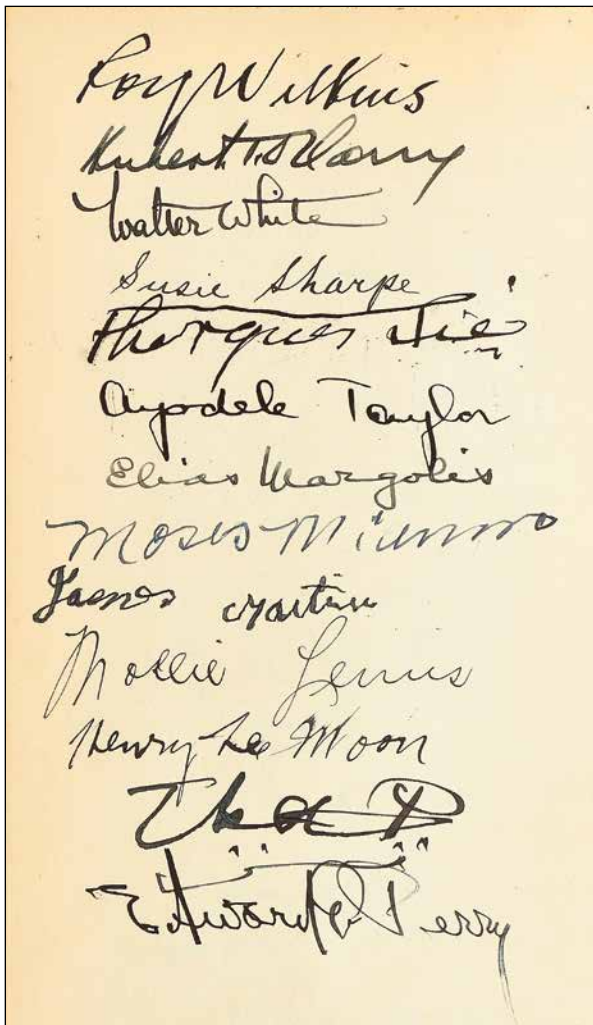 Roy Wilkins
Hubert T. Delany
Walter White
Susie Sharpe
Ayodele Taylor
Elias Margolis
Moses
James Martin
Mollie Lewis
Henry Lee Moon
Edward G. Perry